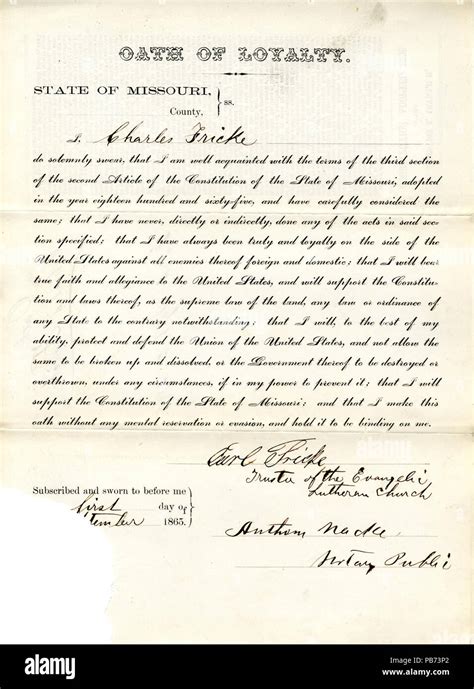 OATH OF LOYALTY.
STATE OF MISSOURI,
County, } ss.
I, Charles Fricke
do solemnly swear, that I am well acquainted with the terms of the third section
of the second Article of the Constitution of the State of Missouri, adopted
in the year eighteen hundred and sixty-five, and have carefully considered the
same; that I have never, directly or indirectly, done any of the acts in said sec
tion specified; that I have always been truly and loyally on the side of the
United States against all enemies thereof foreign and domestic; that I will bear
true faith and allegiance to the United States, and will support the Constitu-
tion and laws thereof, as the supreme law of the land, any law or ordinance of
any State to the contrary notwithstanding; that I will, to the best of my
ability, protect and defend the Union of the United States, and not allow the
same to be broken up and dissolved, or the Government thereof to be destroyed or
overthrown, under any circumstances, if in my power to prevent it; that I will
support the Constitution of the State of Missouri; and that I make this
oath without any mental reservation or evasion, and hold it to be binding on me.
Carl Fricke
Trustee of the Evangelic
Lutheran Church
Subscribed and sworn to before me
first day of
tember 1865.
Notary Public
alamy
Image ID: PB73P2
www.alamy.com